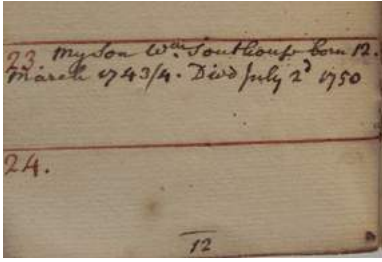 23. My Son Wm. Southouse born 12.
March 1743/4. Died July 2d 1750
24.
12